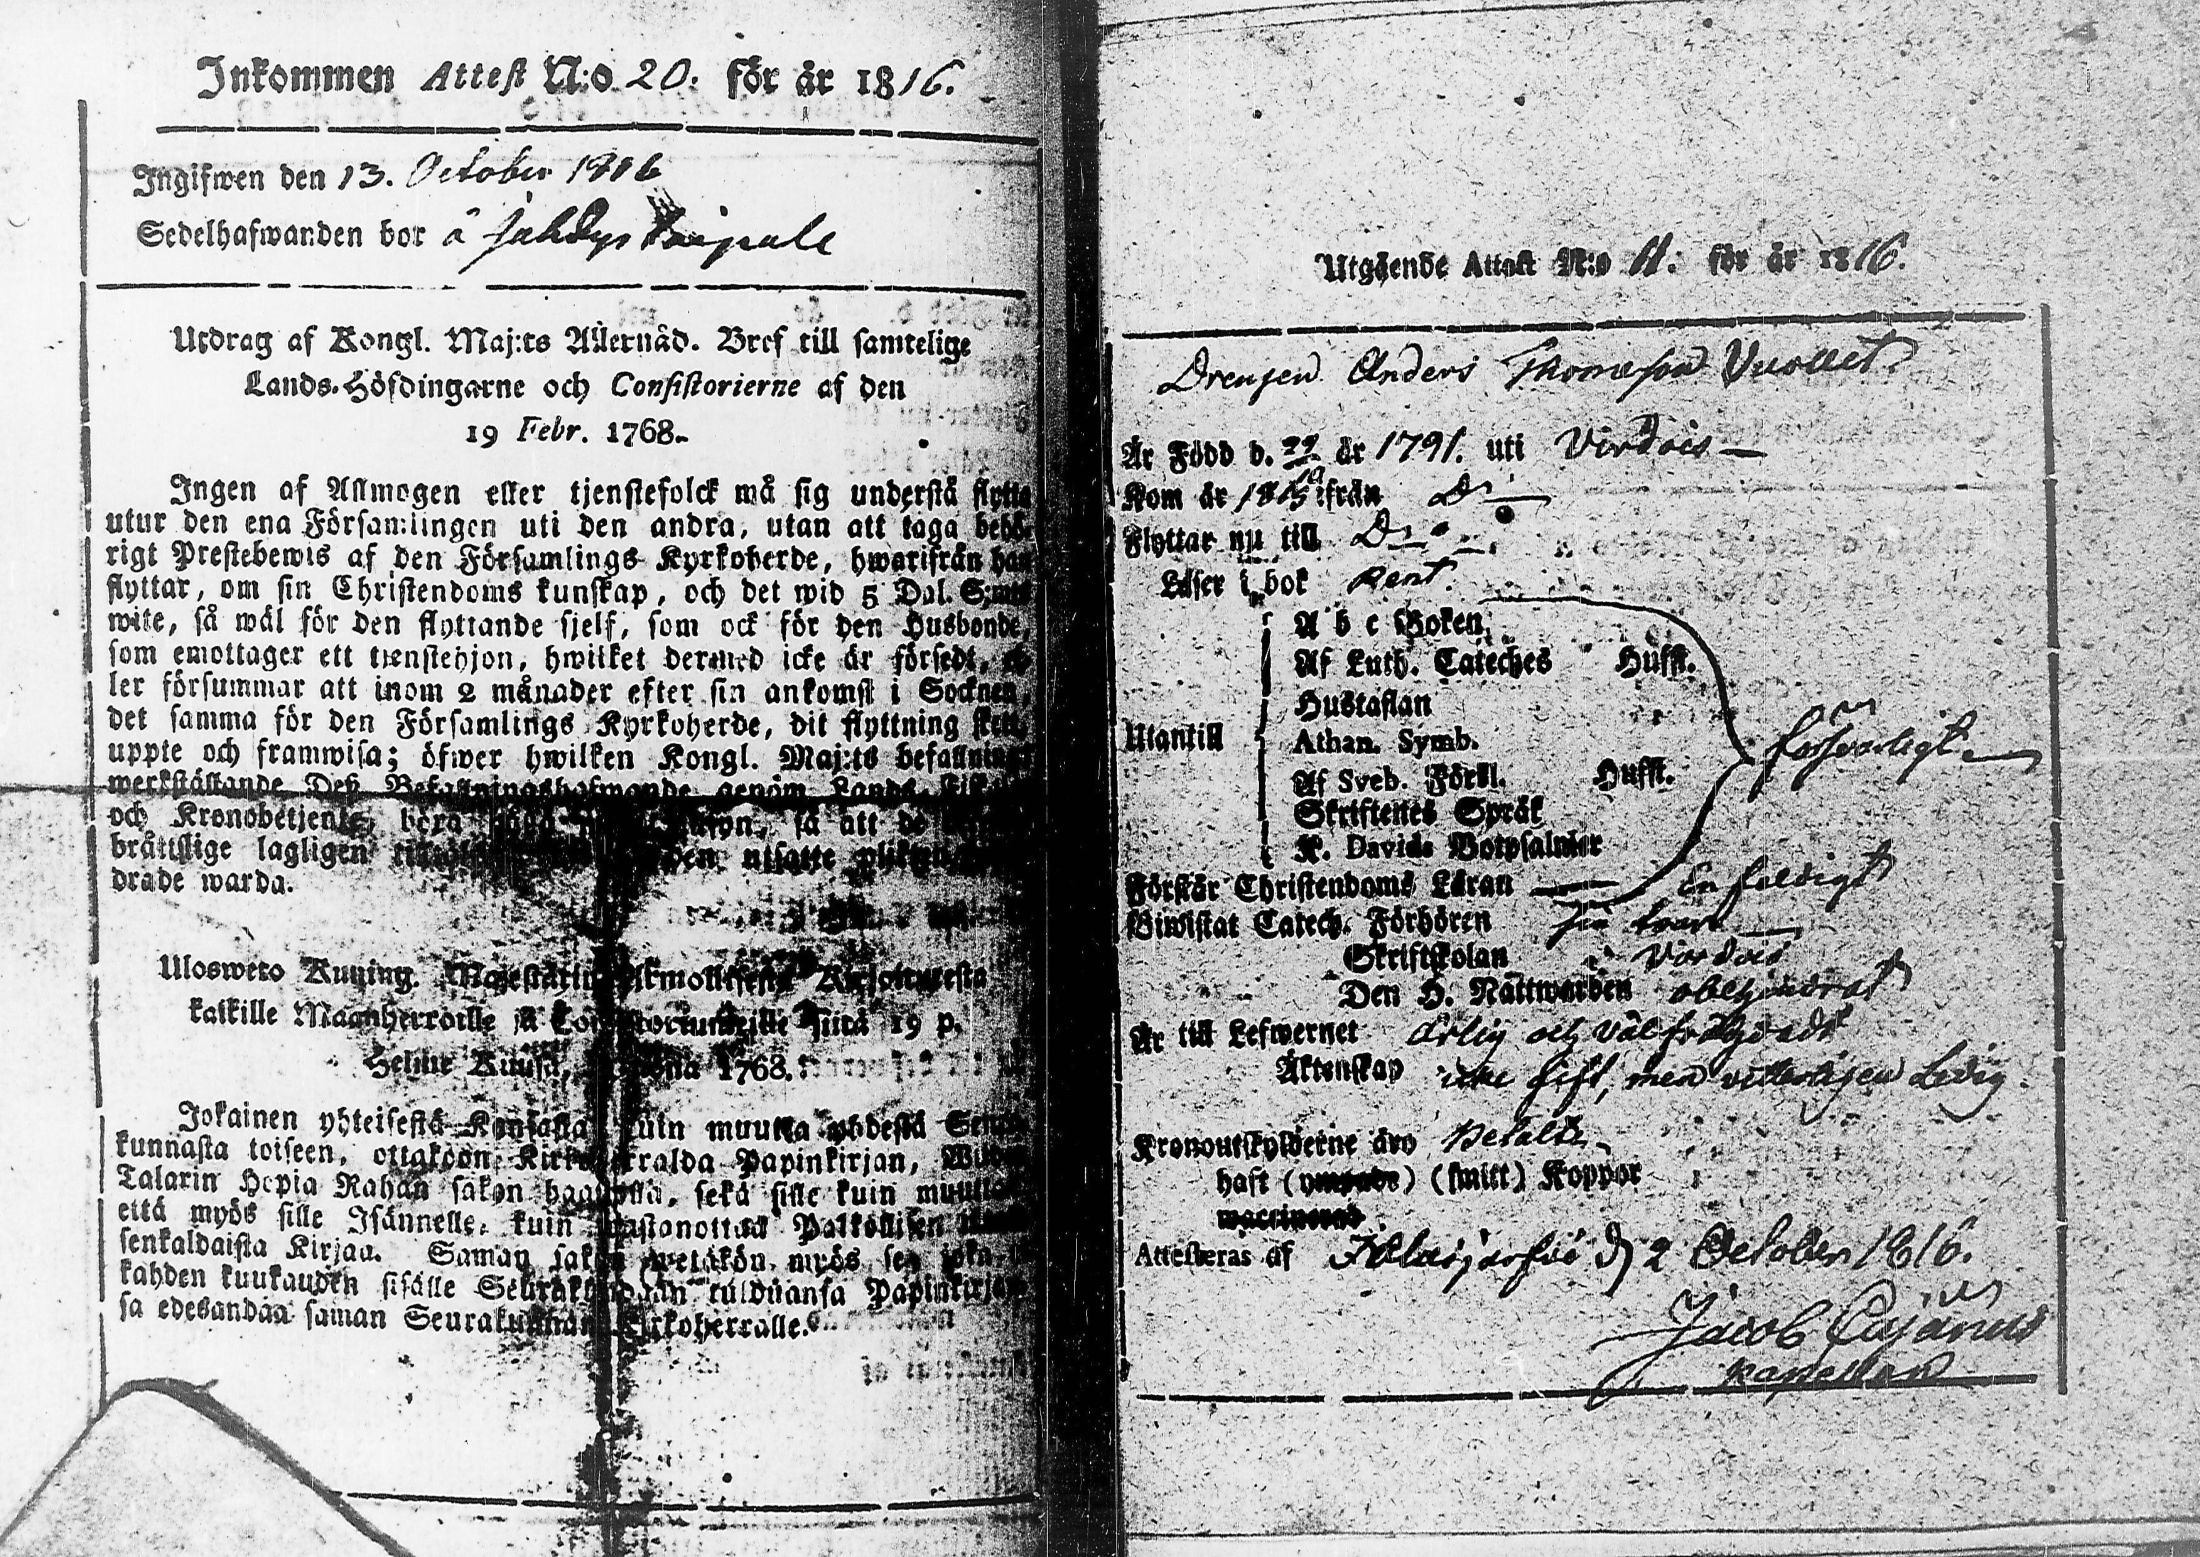 Inkommen Attest N:o 20. för år 1816.
Ingifwen den 13. October 1816
Sedelhafwanden bor å
Utdrag af Kongl. Maj:ts Allernåd. Bref till samtelige
Lands-Höfdingarne och Consistorierne af den
19 Febr. 1768.
Ingen af Allmogen eller tjenstefolck må sig understå flytta
utur den ena Församlingen uti den andra, utan att taga behö-
rigt Prestebewis af den Församlings Kyrkoherde, hwarifrån han
flyttar, om sin Christendoms kunskap, och det wid 5 Dal. S:mts
wite, så wäl för den flyttande sjelf, som ock för den Husbonde,
som emottager ett tienstehjon, hwilket dermed icke är försedt, el-
ler försummar att inom 2 månader efter sin ankomst i Socknen,
det samma för den Församlings Kyrkoherde, dit flyttning skett,
uppte och framwisa; öfwer hwilken Kongl. Maj:ts befallning
werkställande Deß Befallningshafwande genom Lands-
och Kronobetjente, böra så att de
bråttslige lagligen den utsatte plikten
drade warda.
Ulosweto Kuning. Majestätin Kirjoituxesta
kaikille Maanherroille ja 19 p.
Helme Kuusa, 1768.
Jokainen yhteisestä Kansasta kuin muutta yhdestä Seura-
kunnasta toiseen, ottakoon Kirkkoherralda Papinkirjan, Wiiden
Talarin Hopia Rahan sakon haastolla, sekä sille kuin muuttaa
että myös sille Isännelle, kuin wastanottaa Palkollisen
senkaldaista Kirjaa. Saman sakon wetäkön myös se, joka
kahden kuukauden sisälle Seurakundaan tulduansa Papinkirjan-
sa edesandaa saman Seurakunnan Kirkoherralle.
Utgående Attest N:o 11. för år 1816.
Drengen Anders Thomasson Vuollet
Är Född d. 22/10 år 1791. uti Virdois
Kom år 1815 ifrån D:o
Flyttar nu till D:o
Läser i bok Rent
A b c Boken
Af Luth. Cateches Hufst.
Hustaflan
Utantill Athan. Symb. försvarligt
Af Sveb. Förkl. Hufst.
Skriftenes Språk
K. Davids Botpsalmer
Förstår Christendoms Läran Enfaldigt
Biwistat Catech. Förhören
Skriftskolan i Virdois
Den H. Nattwarden obehindrat
Är till Lefwernet ärlig och välfrägdad
Äktenskap icke gift, men vitterligen Ledig.
Kronoutskylderne äro betalte
haft (ympade) (smitt) Koppor
waccinerad
Attesteras af d 2 October 1816.
Jacob Cajanus
Kapellan